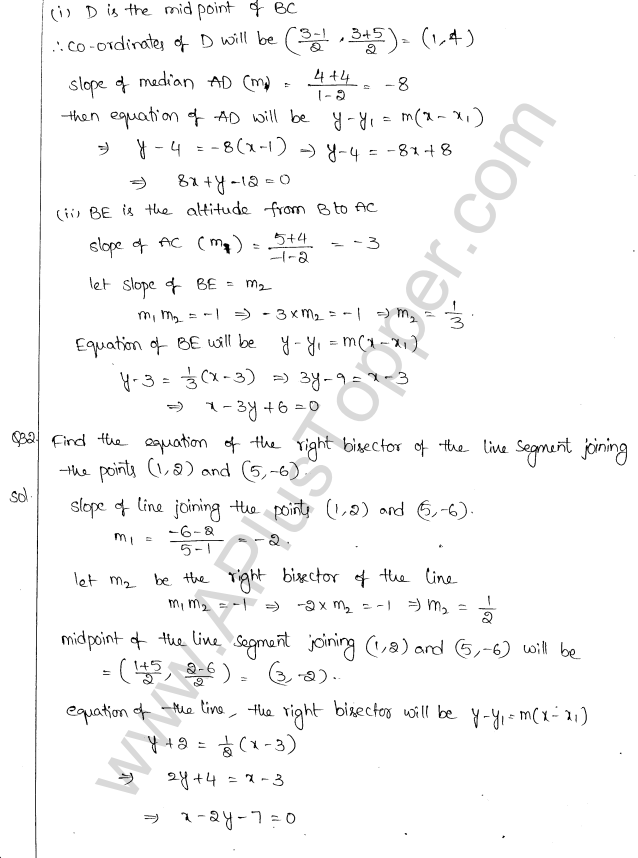 (i) D is the midpoint of BC
∴ co-ordinates of D will be ((3-1)/2, (3+5)/2) = (1,4)
slope of median AD (m₁) = (4+4)/(1-2) = -8
then equation of AD will be y-y₁ = m(x-x₁)
⇒ y-4 = -8(x-1) ⇒ y-4 = -8x+8
⇒ 8x+y-12=0
(ii) BE is the altitude from B to AC
slope of AC (m₁) = (5+4)/(-1-2) = -3
let slope of BE = m₂
m₁m₂ = -1 ⇒ -3×m₂ = -1 ⇒ m₂ = 1/3.
Equation of BE will be y-y₁ = m(x-x₁)
y-3 = 1/3(x-3) ⇒ 3y-9 = x-3
⇒ x-3y+6=0
Q32. Find the equation of the right bisector of the line segment joining
the points (1,2) and (5,-6).
Sol. slope of line joining the points (1,2) and (5,-6).
m₁ = (-6-2)/(5-1) = -2.
let m₂ be the right bisector of the line
m₁m₂ = -1 ⇒ -2×m₂ = -1 ⇒ m₂ = 1/2
midpoint of the line segment joining (1,2) and (5,-6) will be
= ((1+5)/2, (2-6)/2) = (3,-2).
equation of the line, the right bisector will be y-y₁=m(x-x₁)
y+2 = 1/2(x-3)
⇒ 2y+4 = x-3
⇒ x-2y-7=0
www.APlusTopper.com